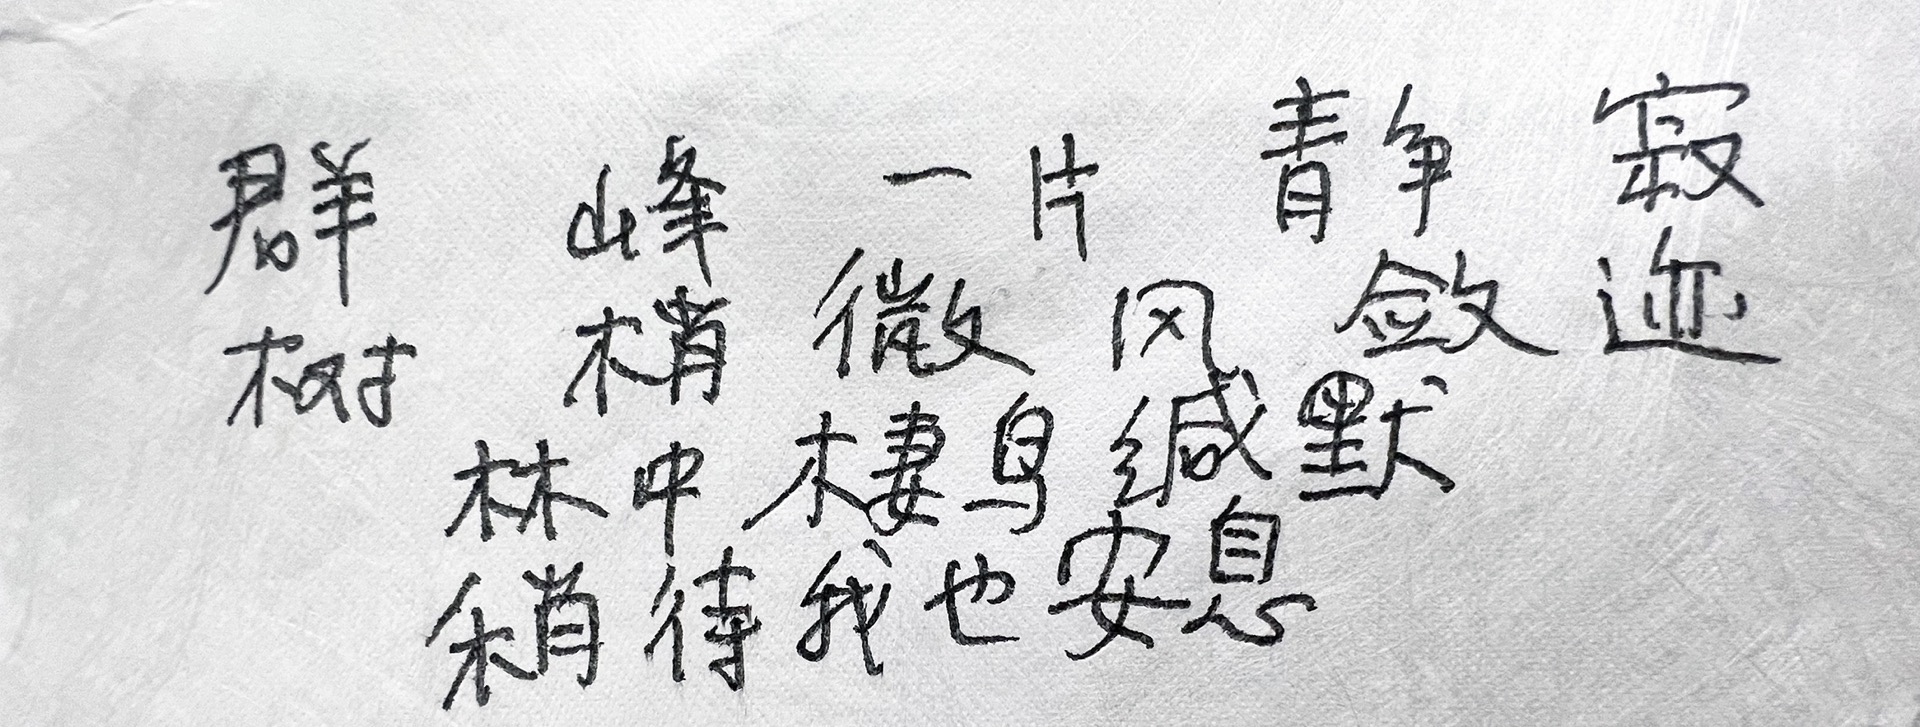 群峰一片静寂
树梢微风敛迹
林中栖鸟缄默
稍待我也安息